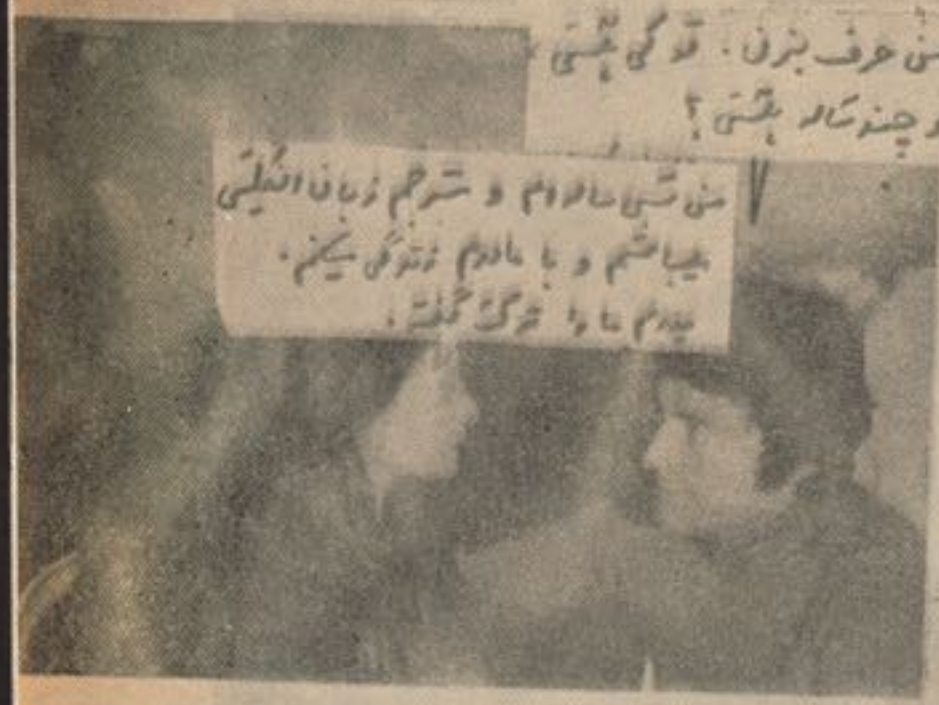 حرف بزن. تو کی هستی
و چند ساله هستی؟
من سی ساله ام و مترجم زبان انگلیسی
میباشم و با مادرم زندگی میکنم.
پدرم ما را ترک گفته.